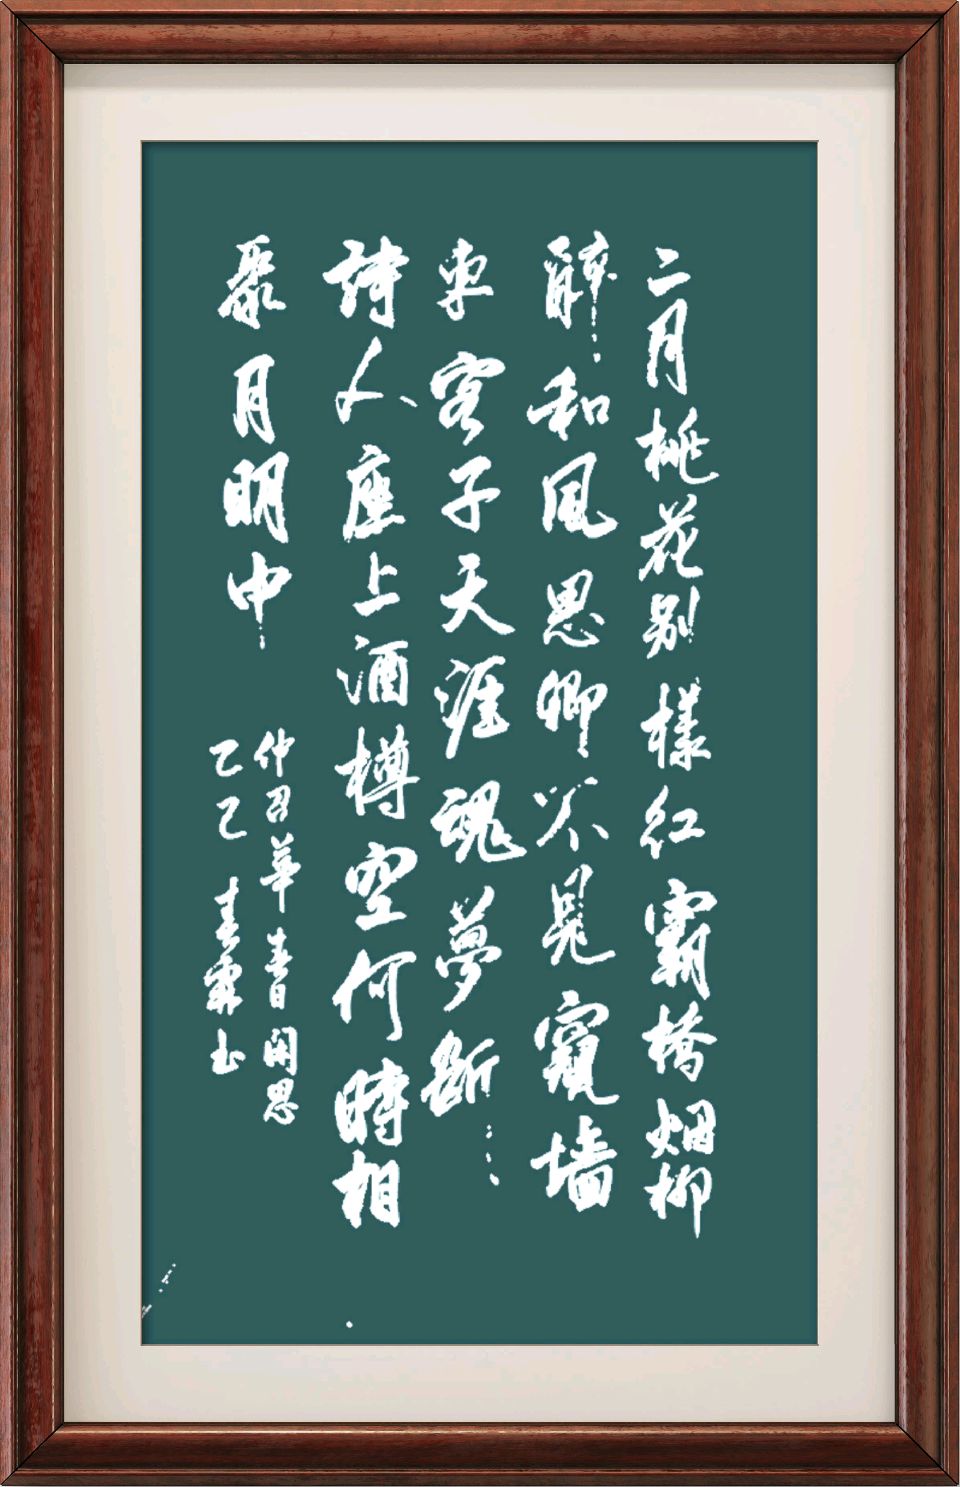 二月桃花别樣红霸橋烟柳
醉和风思卿不見窺墙
東客子天涯魂夢斷
詩人座上酒樽空何時相
聚月明中
仲召華春日閑思
乙己春霖书